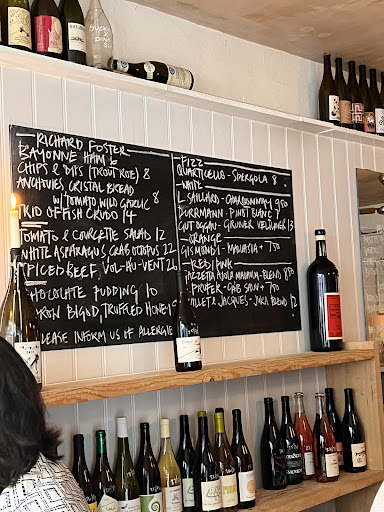 RICHARD FOSTER
BAYONNE HAM 6
CHIPS & DIPS (TROUT ROE) 8
ANCHOVIES, CRISTAL BREAD
W/ TOMATO WILD GARLIC 8
TRIO OF FISH CRUDO 14
TOMATO & COURGETTE SALAD 12
WHITE ASPARAGUS, CRAB OCTOPUS 22
SPICED BEEF, VOL-AU-VENT 26
CHOCOLATE PUDDING 10
BIGOD, TRUFFLED HONEY
PLEASE INFORM US OF ALLERGIE
FIZZ
QUARTICELLO - SPERGOLA 8
WHITE
L. SAILLARD - CHARDONNAY 9.50
DURRMANN - PINOT BLANC 7
GUT OGGAU - GRUNER VELTLINER 13
ORANGE
GISMONDI - MALVASIA + 7.50
RED/PINK
BLEND 8.50
PRUFER - CAB SAUV + 7.50
JACQUES - JURA BLEND 12